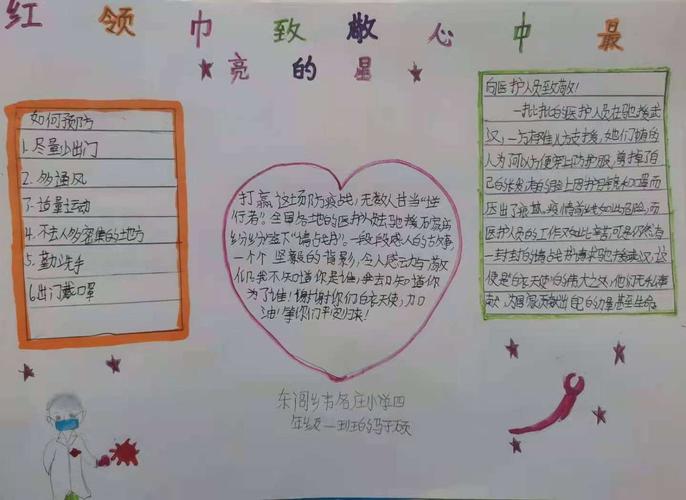 红领巾致敬心中最
亮的星
如何预防
1.尽量少出门
2.多通风
3.适量运动
4.不去人多密集的地方
5.勤洗手
6.出门戴口罩
打赢这场防疫战,无数人甘当“逆
行者”。全国各地的医护
纷纷签下“请战书”。一段段感人的故事,
一个个坚毅的背影,令人感动与敬
仰我不知道你是谁,我却知道你
为了谁!谢谢你们白衣天使,加
油!等你们平安归来!
向医护人员致敬!
一批批的医护人员在驰援武
汉,一方有难八方支援,她们有的
人为了方便穿上防护服,剪掉了自
己的长发,有的脸上因护目镜和口罩而
医护人员的工作如此辛苦可是仍然有
一封封的请战书请求驰援武汉,这
便是“白衣天使”的伟大之处,他们无私奉
献,为国家贡献出自己的力量甚至生命
东闾乡韦各庄小学四
年级一班的马于硕